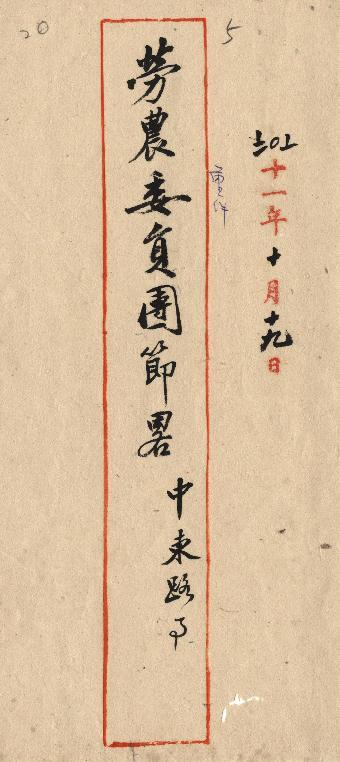 20
5
十一年十月十九日
重件
勞農委員團節畧
中東路事